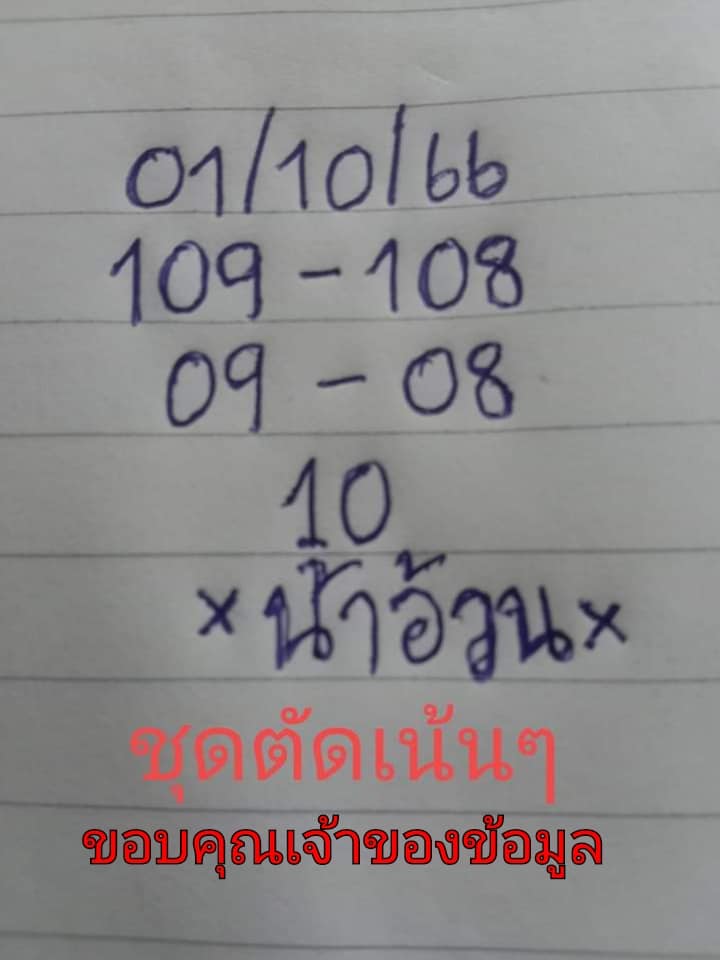 01/10/66
109 - 108
09 - 08
10
× น้าอ้วน ×
ชุดตัดเน้นๆ
ขอบคุณเจ้าของข้อมูล